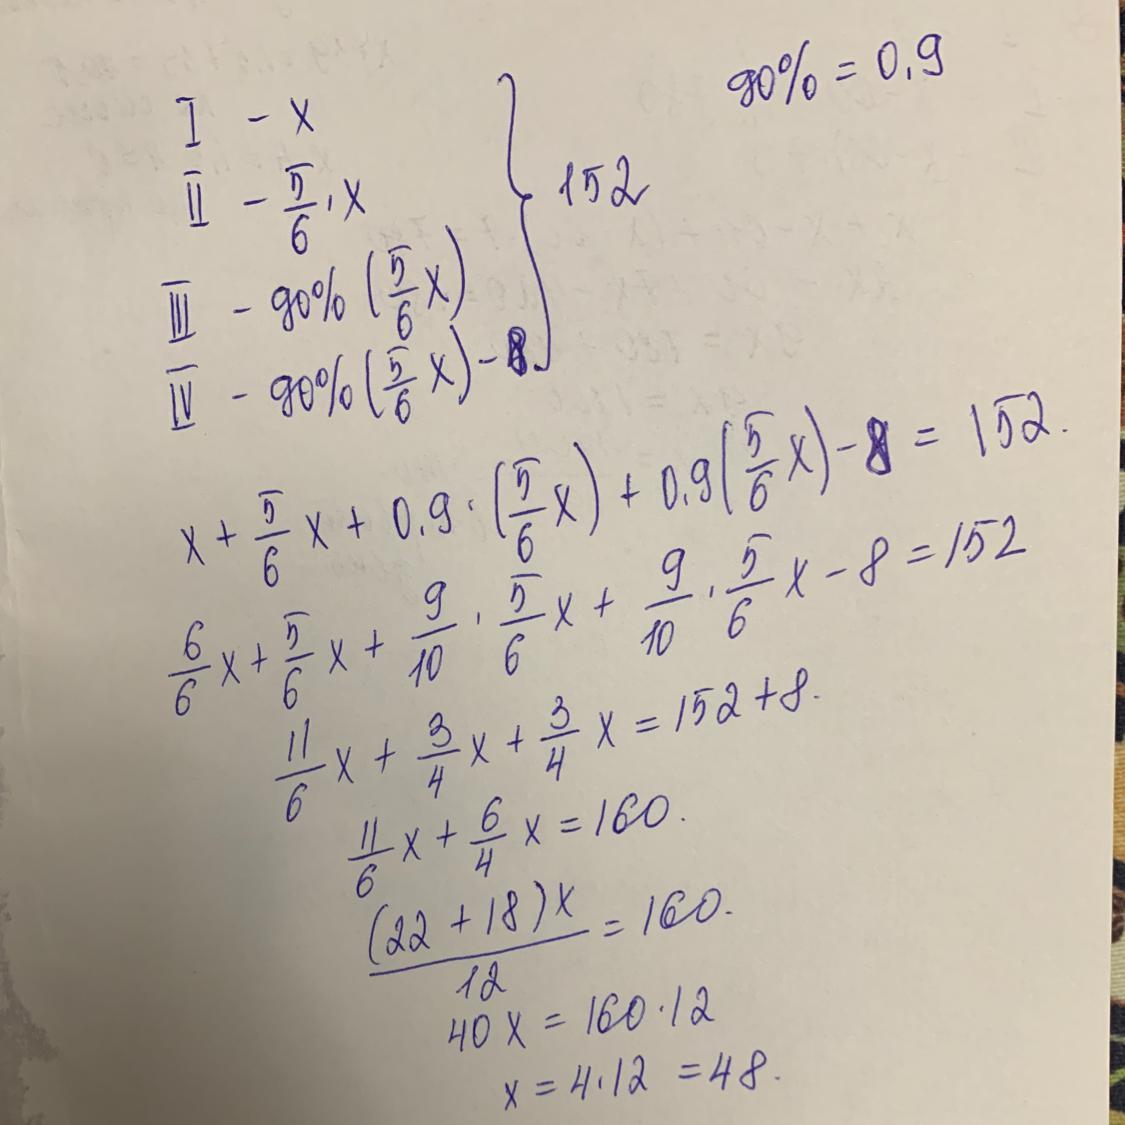 90% = 0.9
I - x
II - 5/6 · x
152
III - 90% (5/6 x)
IV - 90% (5/6 x) - 8.
x + 5/6 x + 0.9 · (5/6 x) + 0.9 (5/6 x) - 8 = 152.
6/6 x + 5/6 x + 9/10 · 5/6 x + 9/10 · 5/6 x - 8 = 152
11/6 x + 3/4 x + 3/4 x = 152 + 8.
11/6 x + 6/4 x = 160.
(22 + 18)x / 12 = 160.
40 x = 160 · 12
x = 4 · 12 = 48.